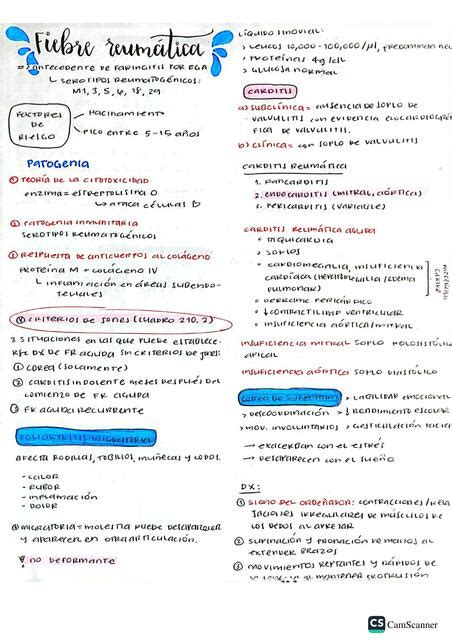 Fiebre reumática
=> antecedente de faringitis por EGA
↳ serotipos reumatogénicos:
M1, 3, 5, 6, 18, 29
FACTORES DE RIESGO
Hacinamiento
Pico entre 5-15 años
PATOGENIA
① TEORÍA DE LA CITOTOXICIDAD
enzima = estreptolisina O
↳ ataca células
② PATOGENIA INMUNITARIA
SEROTIPOS REUMATOGÉNICOS
③ RESPUESTA DE ANTICUERPOS AL COLÁGENO
PROTEÍNA M + COLÁGENO IV
↳ INFLAMACIÓN EN ÁREAS SUBENDO-
TELIALES
CRITERIOS DE JONES (CUADRO 210.2)
3 SITUACIONES EN LAS QUE PUEDE ESTABLECE-
RSE DX DE FR AGUDA SIN CRITERIOS DE JONES:
① COREA (SOLAMENTE)
② CARDITIS INDOLENTE MESES DESPUÉS DEL
COMIENZO DE FR AGUDA
③ FR AGUDA RECURRENTE
POLIARTRITIS MIGRATORIA
AFECTA RODILLAS, TOBILLOS, MUÑECAS Y CODOS.
- CALOR
- RUBOR
- INFLAMACIÓN
- DOLOR
MIGRATORIA = MOLESTIA PUEDE DESAPARECER
Y APARECER EN OTRA ARTICULACIÓN.
NO DEFORMANTE
LÍQUIDO SINOVIAL:
> LEUCOS 10,000-100,000/µl, PREDOMINAN
> PROTEÍNAS 4g/dL
> GLUCOSA NORMAL
CARDITIS
a) SUBCLÍNICA = AUSENCIA DE SOPLO DE
VALVULITIS CON EVIDENCIA ECOCARDIOGRÁ-
FICA DE VALVULITIS.
b) CLÍNICA = CON SOPLO DE VALVULITIS
CARDITIS REUMÁTICA
1. PANCARDITIS
2. ENDOCARDITIS (MITRAL, AÓRTICA)
3. PERICARDITIS (VARIABLE)
CARDITIS REUMÁTICA AGUDA
TAQUICARDIA
SOPLOS
CARDIOMEGALIA, INSUFICIENCIA
CARDÍACA (HEPATOMEGALIA/EDEMA
PULMONAR)
DERRAME PERICÁRDICO
↓ CONTRACTILIDAD VENTRICULAR
INSUFICIENCIA AÓRTICA/MITRAL
INSUFICIENCIA MITRAL SOPLO HOLOSISTÓLICO
APICAL
INSUFICIENCIA AÓRTICA SOPLO DIASTÓLICO
COREA DE SYDENHAM > LABILIDAD EMOCIONAL
> DESCOORDINACIÓN > ↓ RENDIMIENTO ESCOLAR
> MOV. INVOLUNTARIOS > GESTICULACIÓN FACIAL
→ EXACERBAN CON EL ESTRÉS
→ DESAPARECEN CON EL SUEÑO
DX:
① SIGNO DEL ORDEÑADOR: CONTRACCIONES/RELA
JACIONES IRREGULARES DE MÚSCULOS DE
LOS DEDOS AL APRETAR
② SUPINACIÓN Y PRONACIÓN DE MANOS AL
EXTENDER BRAZOS
③ MOVIMIENTOS REPTANTES Y RÁPIDOS DE
AL MANTENER PROTRUSIÓN
CS CamScanner